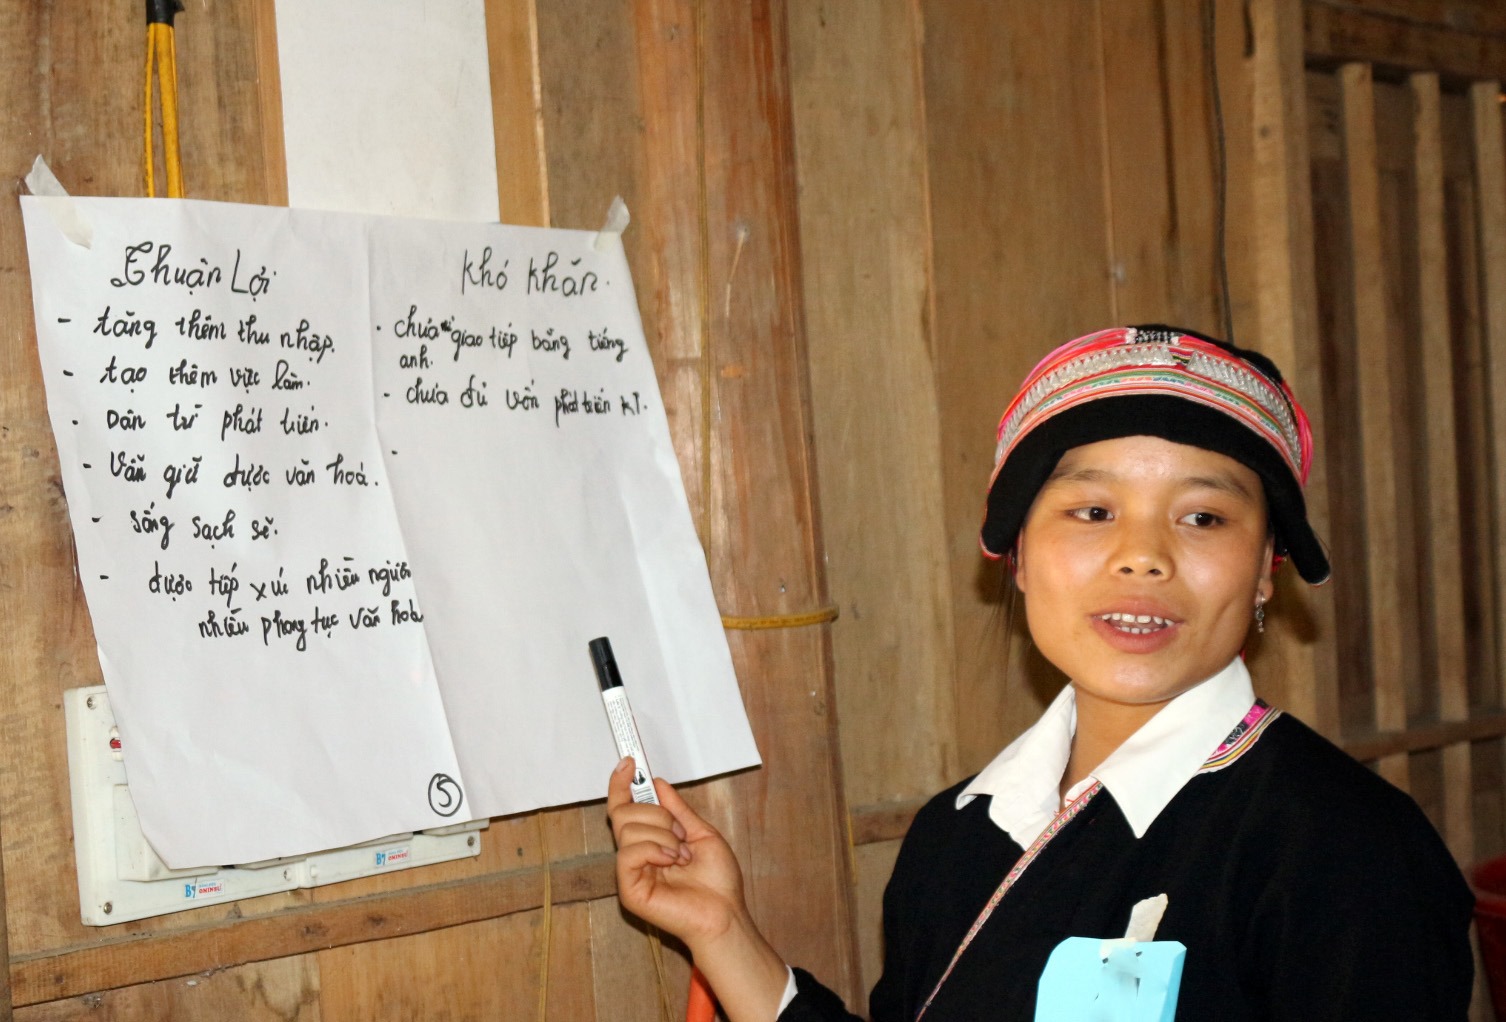 Thuận Lợi
- tăng thêm thu nhập.
- tạo thêm việc làm.
- Dân trí phát triển.
- Vẫn giữ được văn hoá.
- sống sạch sẽ.
- được tiếp xúc nhiều người
nhiều phong tục văn hoá
Khó khăn.
- chưa giao tiếp bằng tiếng
anh.
- chưa đủ vốn phát triển KT.
-
5